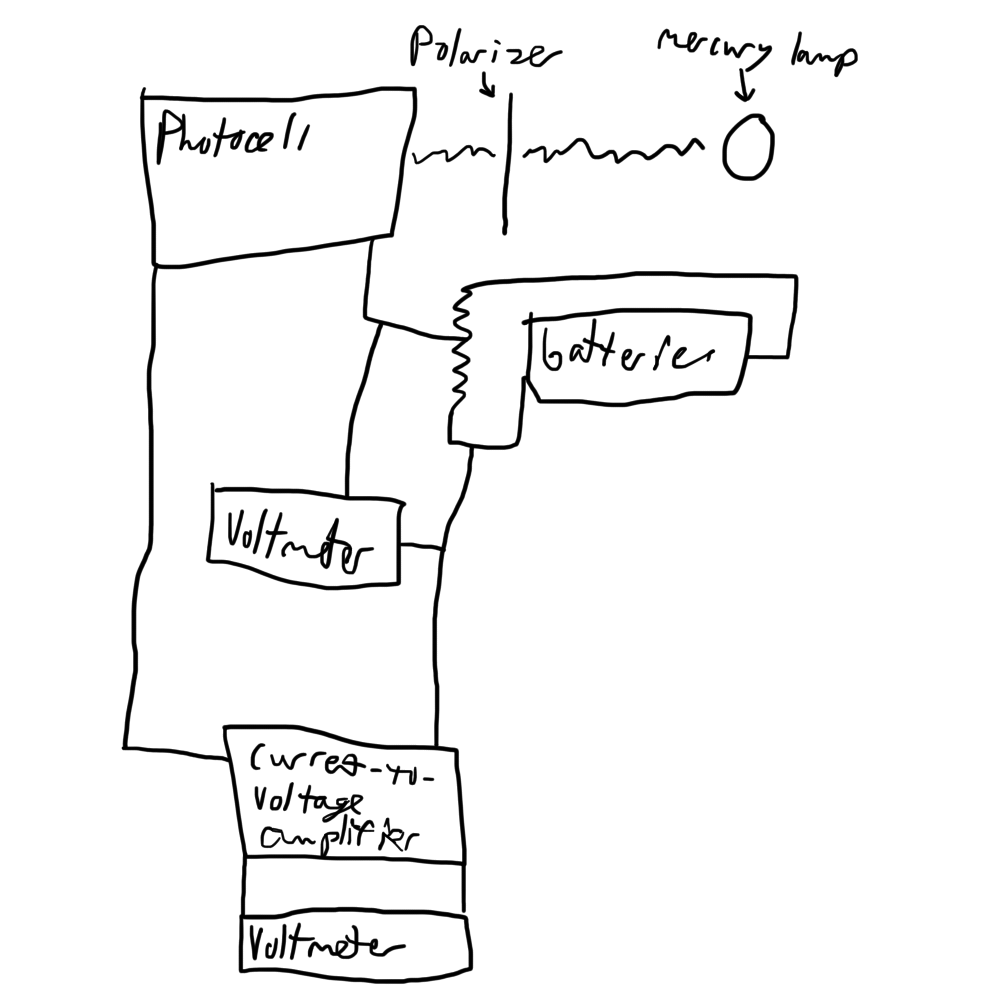 Polarizer
mercury lamp
Photocell
batteries
Voltmeter
Current-to-
voltage
amplifier
Voltmeter